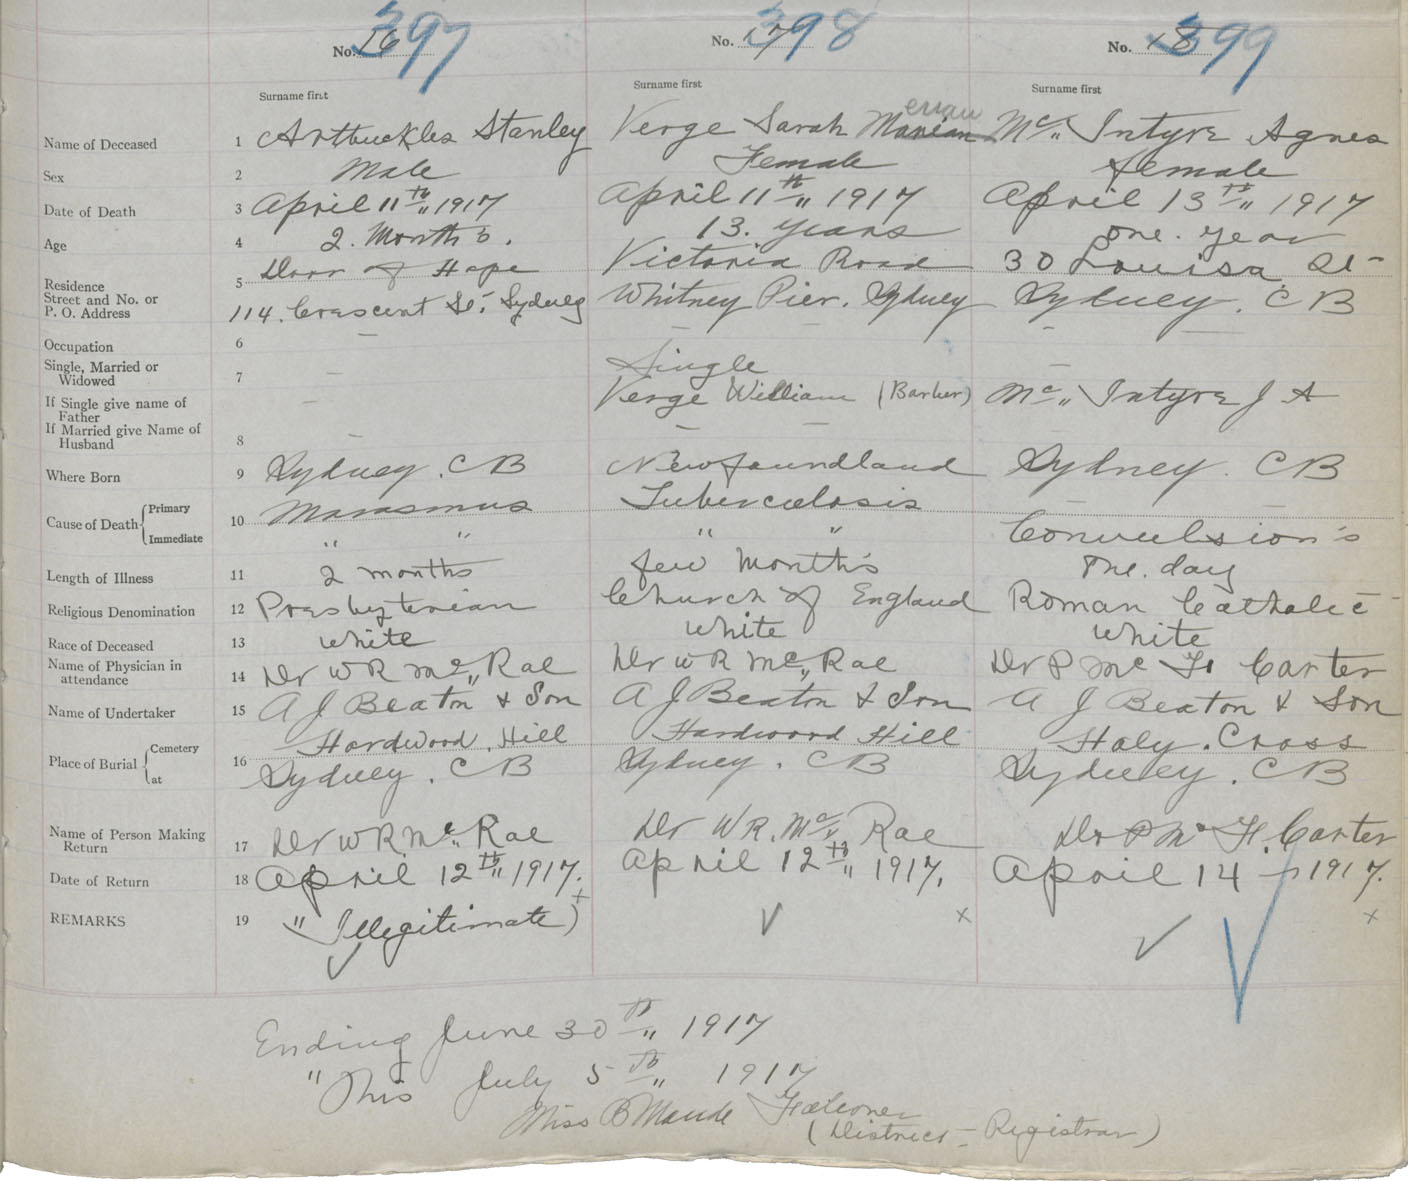 No. 16 397
No. 17 398
No. 18 399
Surname first
Surname first
Surname first
Name of Deceased 1 Arbuckles Stanley
Verge Sarah Marian
Mc Intyre Agnes
Sex 2 Male
Female
female
Date of Death 3 April 11th 1917
April 11th 1917
April 13th 1917
Age 4 2. Months.
13. years
one. year
Residence
Street and No. or
P. O. Address 5
Door of Hope
114. Crescent St. Sydney
Victoria Road
Whitney Pier. Sydney
30 Louisa St
Sydney. CB
Occupation 6 —
—
—
Single, Married or
Widowed 7 —
Single
—
If Single give name of
Father —
Verge William (Barber)
Mc Intyre J A
If Married give Name of
Husband 8 —
—
—
Where Born 9 Sydney. CB
Newfoundland
Sydney. CB
Cause of Death Primary
Immediate 10
Marasmus
" "
Tuberculosis
" "
—
Convulsion's
Length of Illness 11 2 months
few Month's
One. day
Religious Denomination 12 Presbyterian
Church of England
Roman Catholic
Race of Deceased 13 White
White
White
Name of Physician in
attendance 14 Dr W R Mc Rae
Dr W R Mc Rae
Dr P Mc F. Carter
Name of Undertaker 15 A J Beaton & Son
A J Beaton & Son
A J Beaton & Son
Place of Burial Cemetery
at 16
Hardwood Hill
Sydney. CB
Hardwood Hill
Sydney. CB
Holy. Cross
Sydney. CB
Name of Person Making
Return 17 Dr W R. Mc Rae
Dr W R. Mc Rae
Dr P Mc F. Carter
Date of Return 18 April 12th 1917.
April 12th 1917.
April 14 — 1917.
REMARKS 19 " Illegitimate)
Ending June 30th 1917
" This July 5th 1917
Miss B Maude Falconer
(District - Registrar)